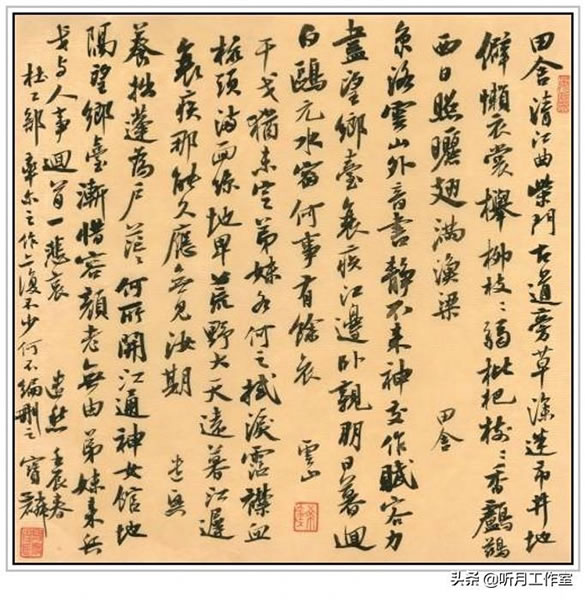 田舍清江曲柴門古道旁草深迷市井地
僻懶衣裳櫸柳枝〻弱枇杷樹〻香鸕鶿
西日照曬翅滿漁梁 田舍
京洛雲山外音書靜不來神交作賦客力
盡望鄉臺衰疾江邊臥親朋日暮迴
白鷗元水宿何事有餘哀 雲山
干戈猶未定弟妹各何之拭淚霑襟血
梳頭滿面絲地卑荒野大天遠暮江遲
衰疾那能久應無見汝期 遣興
養拙蓬為戶茫〻何所開江通神女館地
隔望鄉臺漸惜容顏老無由弟妹來兵
戈與人事迴首一悲哀 遣愁 壬辰春
杜工部率尔之作復不少何不編刪之 寶麟
头条 @听月工作室